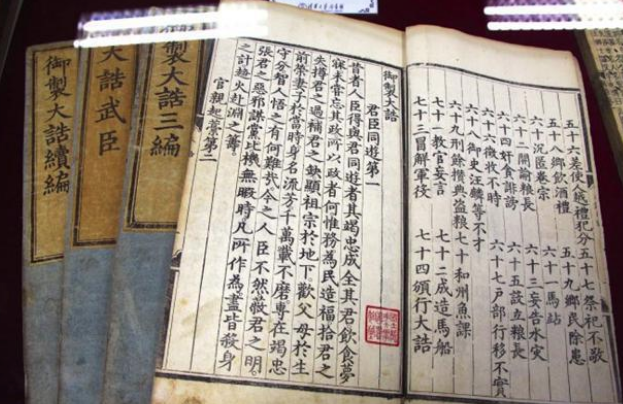 五十六差使人越禮犯分 五十七祭祀不敬
五十八鄉飲酒禮 五十九鄉民除患
六十沉匿卷宗 六十一馬站
六十二開諭粮長 六十三妄告水灾
六十四奸食誹謗 六十五設立粮長
六十六徵收不時 六十七戶部行移不實
六十八御史汪麟等不才
六十九刑餘攢典盜粮 七十和州魚課
七十一教官妄言 七十二成造馬船
七十三冒解軍役 七十四頒行大誥
御製大誥
君臣同遊第一
昔者人臣得與君同遊者其竭忠成全其君飲食夢
寐未嘗忘其政所以政者何惟務為民造福拾君之
失撙君之過補君之缺顯祖宗於地下歡父母於生
前榮妻子於當時身名流芳千萬載不磨專在竭忠
守分智人悟之有何難哉今之人臣不然蔽君之明
張君之惡邪謀黨比機無暇時凡所作為盡皆殺身
之計趍火赴淵之籌
官親起
第二
御製大誥三編
大誥武臣
御製大誥續編